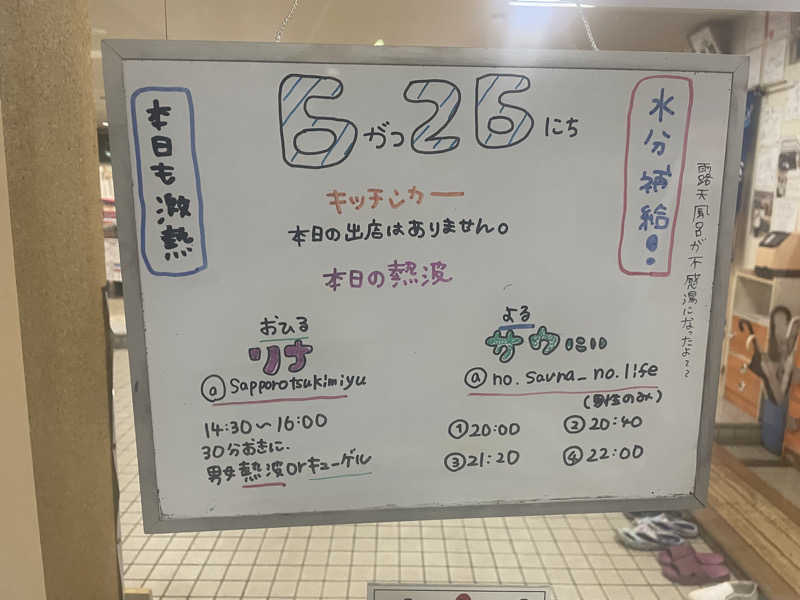 6がつ26にち
本日も激熱
水分補給!
露天風呂が不感湯になったよ〜〜
キッチンカー
本日の出店はありません。
本日の熱波
おひる
ツナ
@sapporotsukimiyu
14:30〜16:00
30分おきに.
男女熱波orキューゲル
よる
サウにい
@no.sauna_no.life
(男性のみ)
①20:00 ②20:40
③21:20 ④22:00